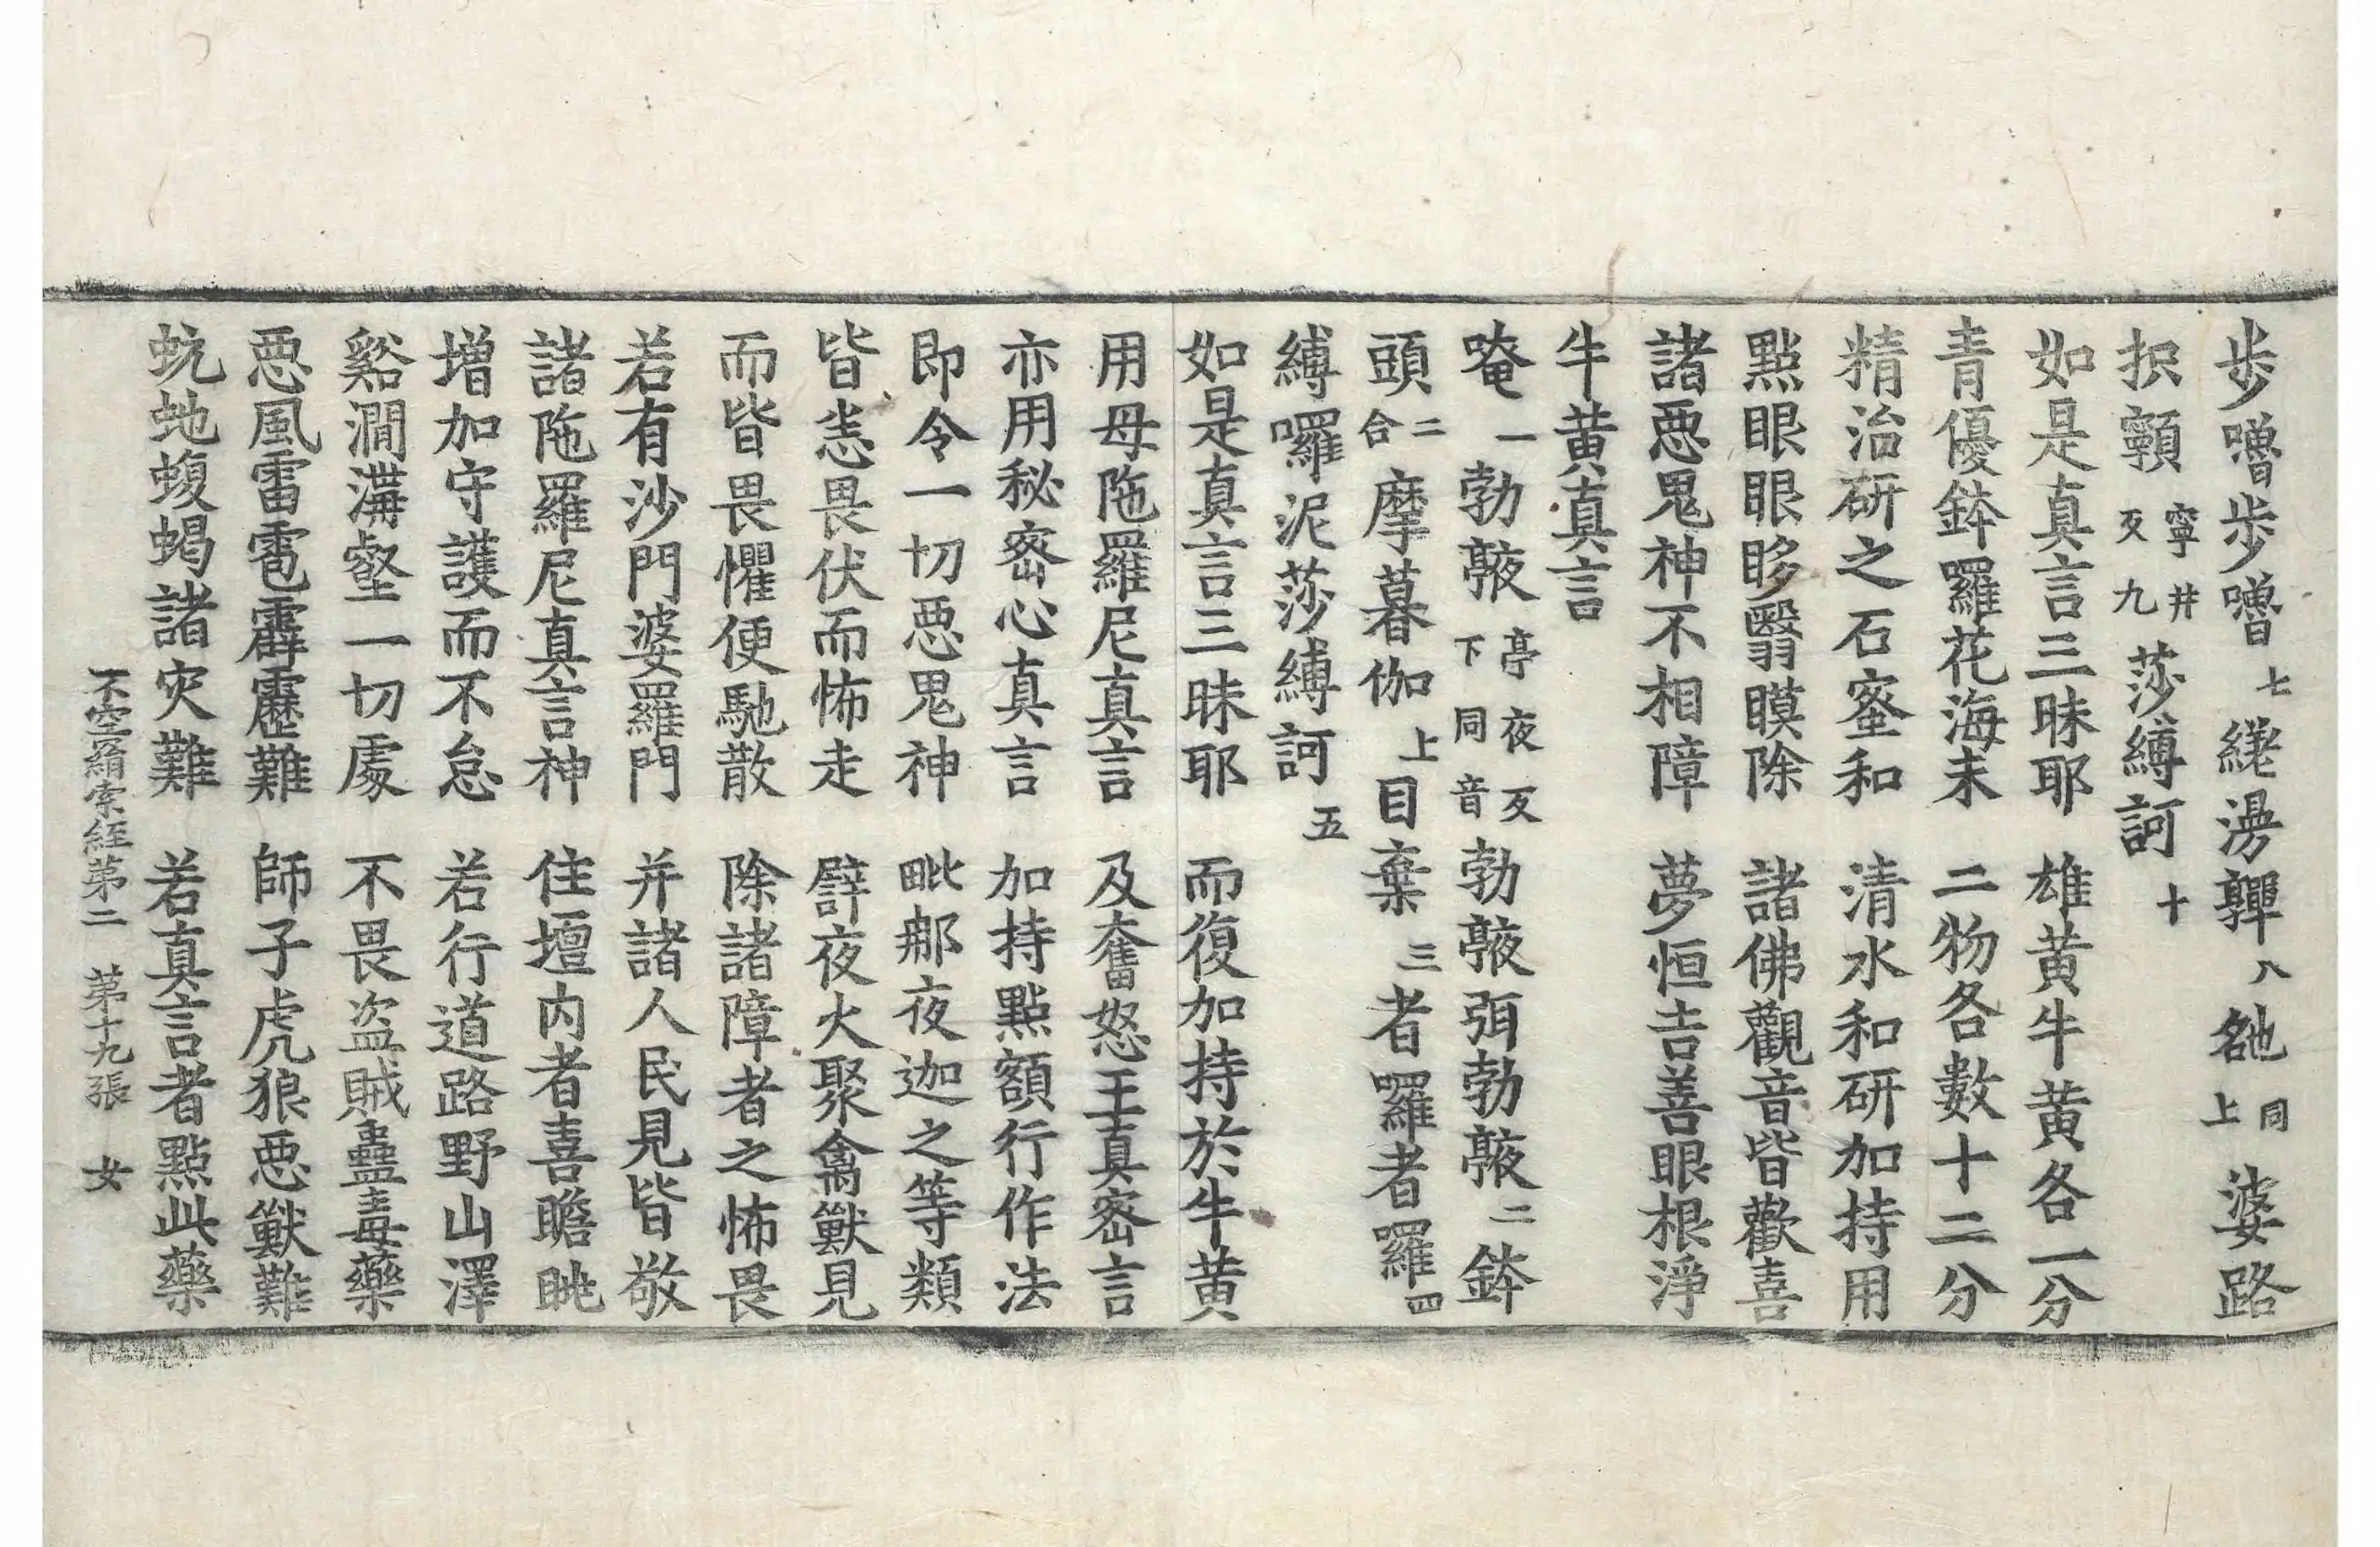 步噜步噜七𦆯㵝𩋾八䫂上同婆路
抧顐寧井反九莎縛訶十
如是真言三昧耶　雄黃牛黃各一分
青優鉢羅花海末　二物各數十二分
精治研之石蜜和　清水和研加持用
點眼眼眵瞖瞙除　諸佛觀音皆歡喜
諸惡鬼神不相障　夢恒吉善眼根淨
牛黃真言
唵一勃㰠亭夜反下同音勃㰠弭勃㰠二鉢
頭二合摩暮伽上目棄三者囉者囉四
縛囉泥莎縛訶五
如是真言三昧耶　而復加持於牛黃
用母陁羅尼真言　及奮怒王真密言
亦用秘密心真言　加持點額行作法
即令一切惡鬼神　毗那夜迦之等類
皆恚畏伏而怖走　譬夜火聚禽獸見
而皆畏懼便馳散　除諸障者之怖畏
若有沙門婆羅門　并諸人民見皆敬
諸陁羅尼真言神　住壇內者喜瞻眺
增加守護而不怠　若行道路野山澤
谿澗溝壑一切處　不畏盜賊蠱毒藥
惡風雷雹霹靂難　師子虎狼惡獸難
蚖虵蝮蝎諸灾難　若真言者點此藥
不空羂索經第二　第十九張　女